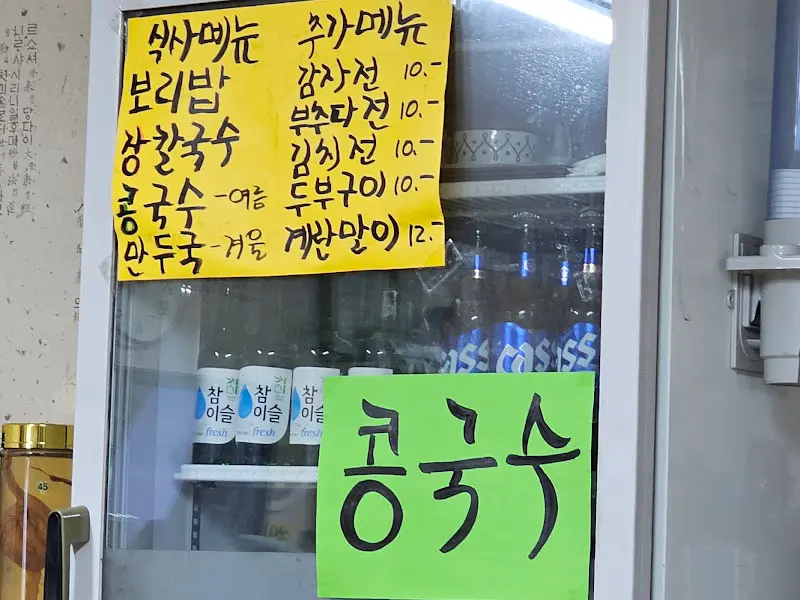 식사메뉴
보리밥
장칼국수
콩국수-여름
만두국-겨울
추가메뉴
감자전 10.-
부추다전 10.-
김치전 10.-
두부구이 10.-
계란말이 12.-
cass
cass
참이슬
fresh
참이슬
fresh
참이슬
fresh
콩국수
45